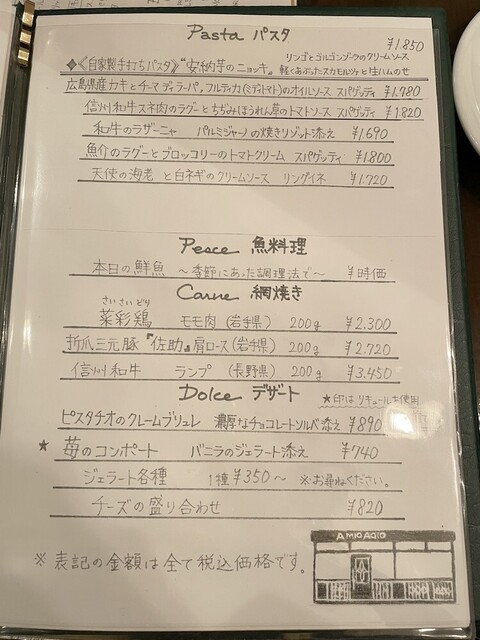 Pasta パスタ
¥1.850
リンゴとゴルゴンゾーラのクリームソース
◆《自家製手打ちパスタ》"安納芋のニョッキ" 軽くあぶったスカモルツァと生ハムのせ
広島県産カキとチーマ ディ ラーパ、フルティカ(ミディトマト)のオイルソース スパゲッティ ¥1.780
信州和牛スネ肉のラグーとちぢみほうれん草のトマトソース スパゲッティ ¥1.820
和牛のラザーニャ パルミジャーノの焼きリゾット添え ¥1,690
魚介のラグーとブロッコリーのトマトクリーム スパゲッティ ¥1800
天使の海老 と白ネギのクリームソース リングイネ ¥1720
Pesce 魚料理
本日の鮮魚 〜季節にあった調理法で〜 ¥時価
Carne 網焼き
さいさいどり
菜彩鶏 モモ肉 (岩手県) 200g ¥2,300
折爪三元豚『佐助』肩ロース(岩手県) 200g ¥2.720
信州和牛 ランプ (長野県) 200g ¥3.450
Dolce デザート
★印は リキュールを使用
ピスタチオのクレームブリュレ 濃厚なチョコレートソルベ添え ¥890
★ 苺のコンポート バニラのジェラート添え ¥740
ジェラート各種 1種 ¥350〜 ※お尋ねください。
チーズの盛り合わせ ¥820
※表記の金額は全て税込価格です。
AMIO AGIO